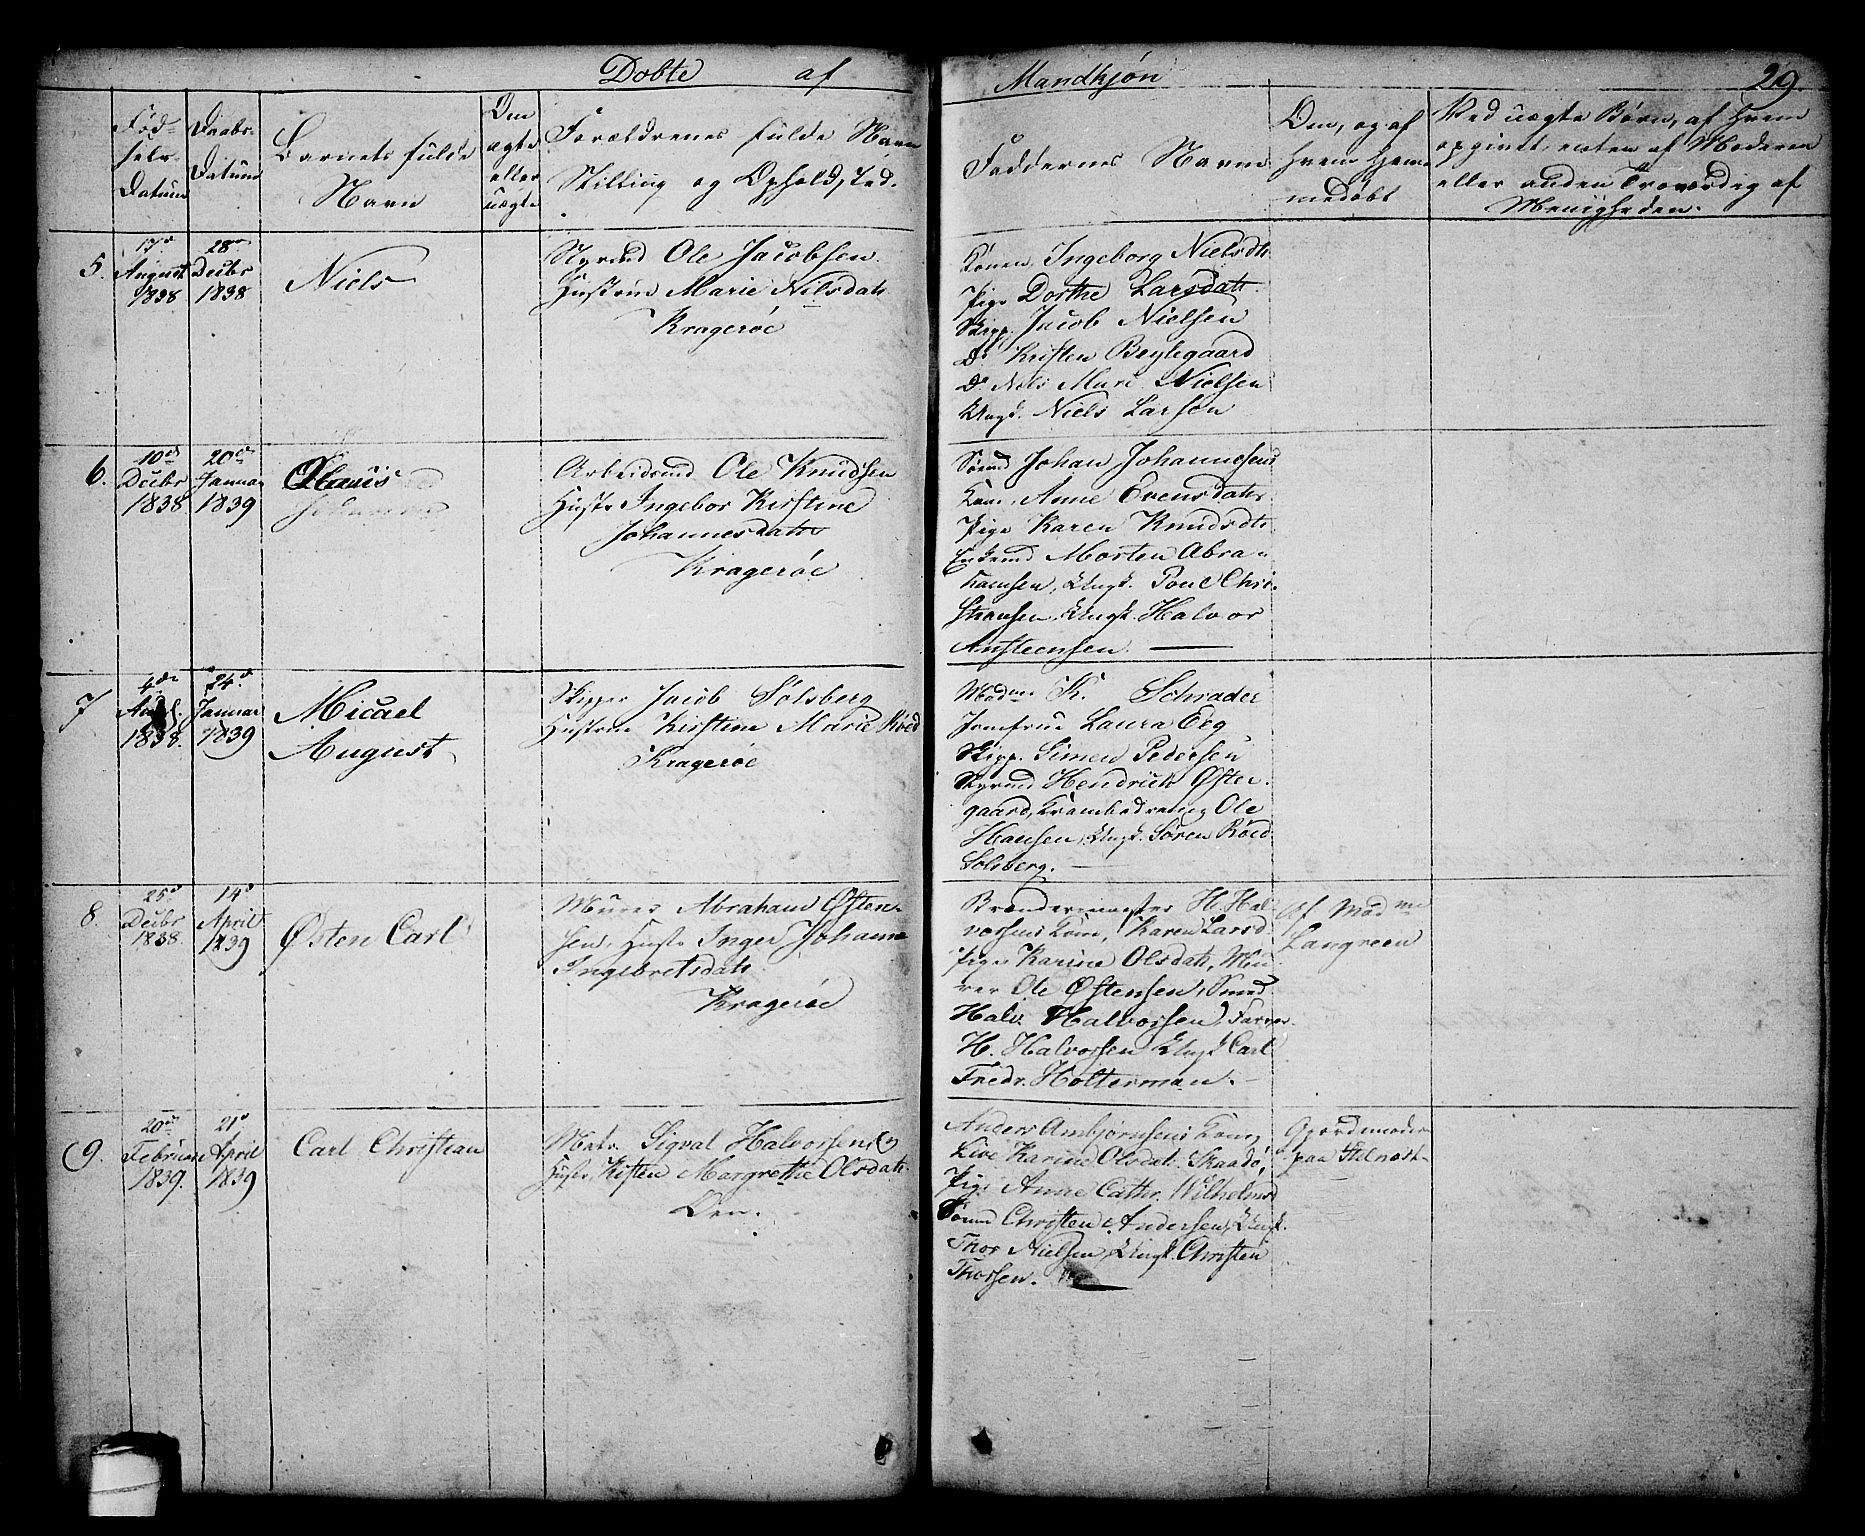 Døbte af Mandkjøn 29.
Fød-
sels
Datum
Daabs-
Datum
Barnets fulde
Navn
Om
ægte
eller
uægte
Forældrenes fulde Navn
Stilling og Opholdsted.
Faddernes Navne
Om, og af
hvem hjem-
medøbt
Ved uægte Børn, af hvem
opgivet, enten af Moderen
eller anden Troværdig af
Menigheden.
5.
17de
August
1838
28de
Decbr
1838
Niels
Ole Jacobsen
Hustrue Marie Nilsdatr
Kragerøe
Konen Ingeborg Nielsdtr
Pige Dorthe Larsdatr
Skipp. Jacob Nielsen
Do Kristen Beylegaard
Do Niels Nielsen
Ungk. Niels Larsen
6.
10de
Decbr
1838
20de
Januar
1839
Olauis
Arbeidsmd Ole Knudsen
Hustr Ingebor Kirstine
Johannesdatr
Kragerøe
Sømd Johan Johannesens
Kone, Anne Evensdatr
Pige Karen Knudsdtr
Enkemd Morten Abra-
hamsen, Ungk. Poul Chri-
stiansen, Ungk. Halvor
Ansteensen.
7
4de
1838.
24de
Januar
1839
Micael
August
Skipper Jacob Solsberg
Hustrue Kirstine Marie Røed
Kragerøe
Madme K. Schrader
Jomfrue Laura Eeg
Skipp. Simen Pedersen
Styrmd Hendrick Øster-
gaard, Krambodsvend Ole
Hansen, Ungk. Søren Røed
Solsberg.
8.
25de
Decbr
1838.
14de
April
1839
Østen Carl
Murer Abraham Østen-
sen, Hustr Inger Johanne
Ingebretsdatr
Kragerøe
Brændermester H. Hal-
vorsens Kone, Karen Larsd
Pige Karine Olsdatr, Mu-
rer Ole Østensen, Smed
Halv. Halvorsen, Farver
H. Halvorsen Ungk Carl
Fredr. Holterman.
Af Madme
Langreen
9.
20de
Februar
1839.
21de
April
1839
Carl Christian
Matr. Sigval Halvorsen
Hustr. Kisten Margrethe Olsdatr.
Øen.
Anders Ambjørnsens Kone
Live Karine Olsdat. Skaadø,
Pige Anne Cathr. Wilhelmsd
Sømd Christen Andersen, Ungk.
Thor Nielsen, Ungk. Christen
Thorsen.
Gjordemoder
paa